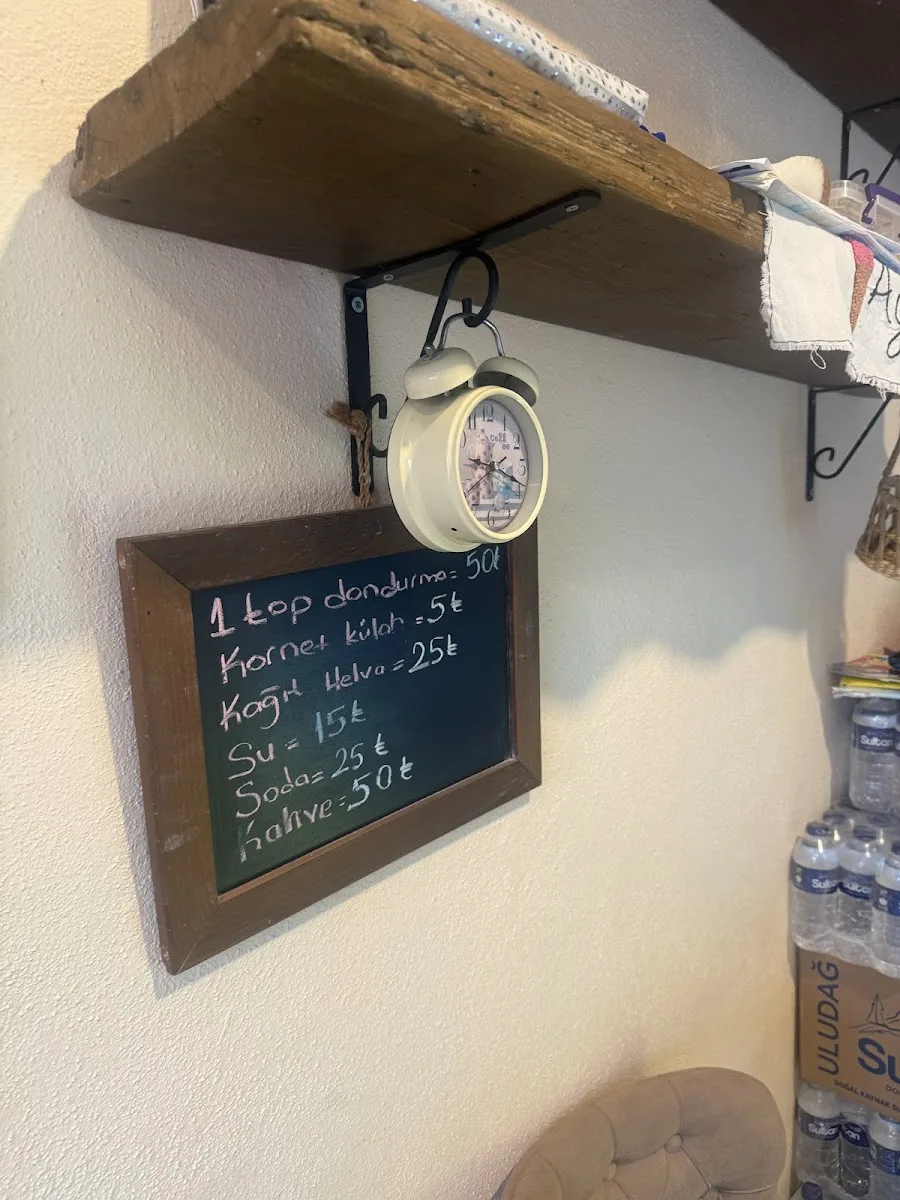 1 top dondurma= 50₺
Kornet külah =5₺
Kağıt Helva =25₺
Su = 15₺
Soda= 25 ₺
Kahve =50 ₺
12
Sultan
Sultan
ULUDAĞ
Su
DOĞAL KAYNAK SU
Sultan